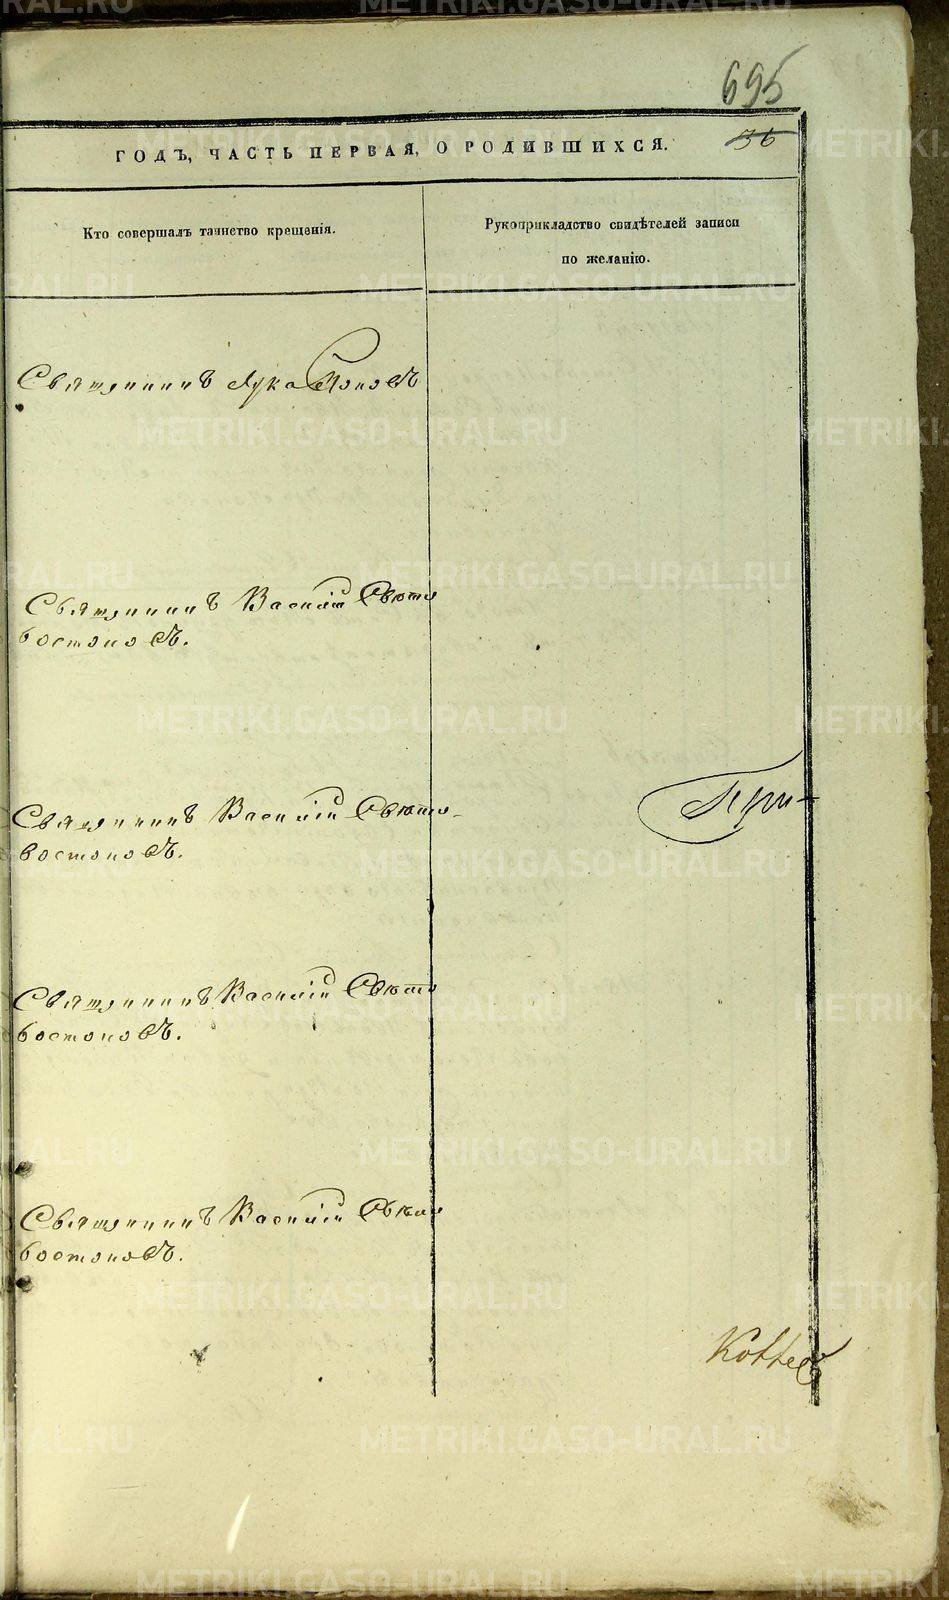 695
36
ГОДЪ, ЧАСТЬ ПЕРВАЯ, О РОДИВШИХСЯ.
Кто совершалъ таинство крещенія.
Рукоприкладство свидѣтелей записи
по желанію.
Священникъ Лука Поповъ
Священникъ Василій
востоковъ.
Священникъ Василій
востоковъ.
Священникъ Василій
востоковъ.
Священникъ Василій
востоковъ.
METRIKI.GASO-URAL.RU